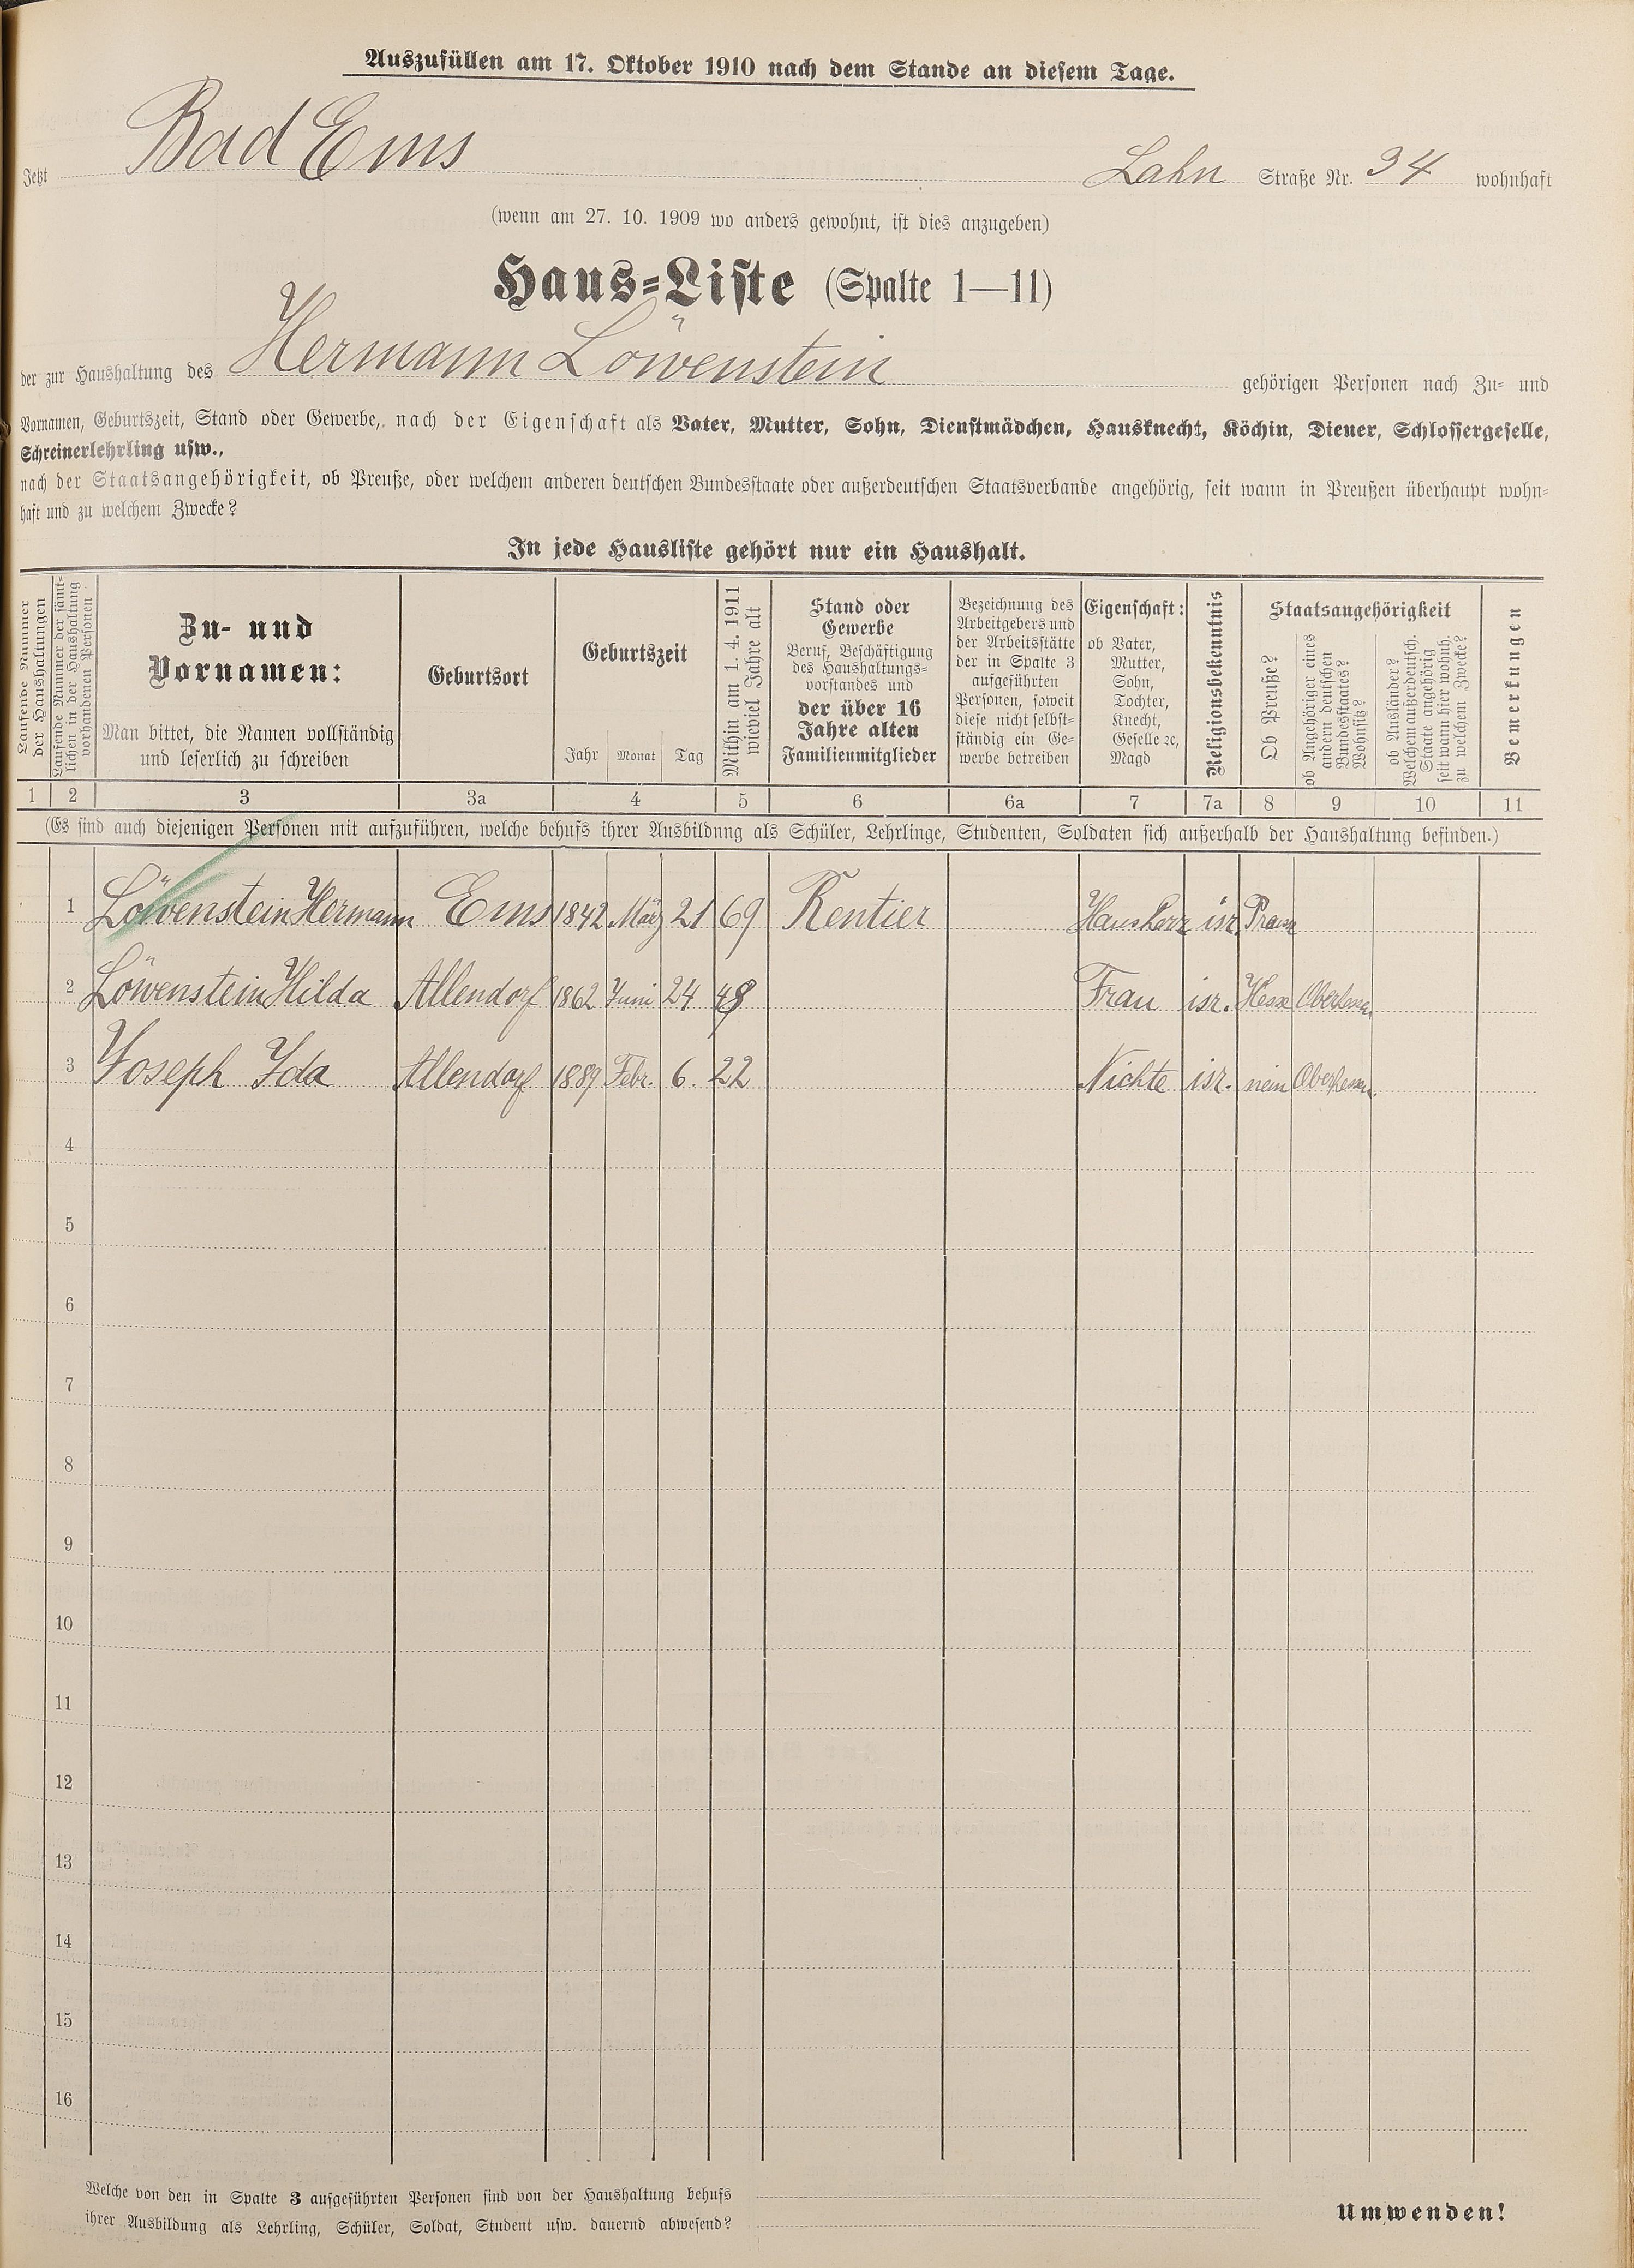 Auszufüllen am 17. Oktober 1910 nach dem Stande an diesem Tage.
Jetzt Bad Ems Lahn Straße Nr. 34 wohnhaft
(wenn am 27. 10. 1909 wo anders gewohnt, ist dies anzugeben)
Haus-Liste (Spalte 1—11)
der zur Haushaltung des Hermann Löwenstein gehörigen Personen nach Zu- und
Vornamen, Geburtszeit, Stand oder Gewerbe, nach der Eigenschaft als Vater, Mutter, Sohn, Dienstmädchen, Hausknecht, Köchin, Diener, Schlossergeselle,
Schreinerlehrling usw.,
nach der Staatsangehörigkeit, ob Preuße, oder welchem anderen deutschen Bundesstaate oder außerdeutschen Staatsverbande angehörig, seit wann in Preußen überhaupt wohn-
haft und zu welchem Zwecke?
In jede Hausliste gehört nur ein Haushalt.
Laufende Nummer
der Haushaltungen
Laufende Nummer der sämt-
lichen in der Haushaltung
vorhandenen Personen
Zu- und
Vornamen:
Man bittet, die Namen vollständig
und leserlich zu schreiben
Geburtsort
Geburtszeit
Jahr Monat Tag
Mithin am 1. 4. 1911
wieviel Jahre alt
Stand oder
Gewerbe
Beruf, Beschäftigung
des Haushaltungs-
vorstandes und
der über 16
Jahre alten
Familienmitglieder
Bezeichnung des
Arbeitgebers und
der Arbeitsstätte
der in Spalte 3
aufgeführten
Personen, soweit
diese nicht selbst-
ständig ein Ge-
werbe betreiben
Eigenschaft:
ob Vater,
Mutter,
Sohn,
Tochter,
Knecht,
Geselle ec,
Magd
Religionsbekenntnis
Staatsangehörigkeit
Ob Preuße?
ob Angehöriger eines
andern deutschen
Bundesstaates?
Wohnsitz?
ob Ausländer?
Welchem außerdeutsch.
Staate angehörig
seit wann hier wohnh.
zu welchem Zwecke?
Bemerkungen
1 2 3 3a 4 5 6 6a 7 7a 8 9 10 11
(Es sind auch diejenigen Personen mit aufzuführen, welche behufs ihrer Ausbildung als Schüler, Lehrlinge, Studenten, Soldaten sich außerhalb der Haushaltung befinden.)
1 Löwenstein Hermann Ems 1842 März 21 69 Rentier Hausherr isr.
2 Löwenstein Hilda Allendorf 1862 Juni 24 48 Frau isr. Hesse Oberhessen
3 Joseph Ida Allendorf 1889 Febr. 6. 22 Nichte isr. nein Oberhessen
4
5
6
7
8
9
10
11
12
13
14
15
16
Welche von den in Spalte 3 aufgeführten Personen sind von der Haushaltung behufs
ihrer Ausbildung als Lehrling, Schüler, Soldat, Student usw. dauernd abwesend?
Umwenden!